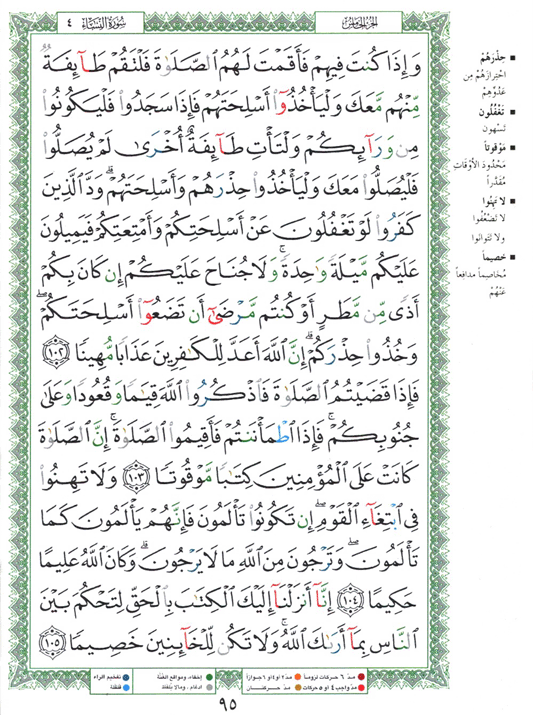 سُورَةُ النِّسَاءِ ٤
الجزء الخامس
وَإِذَا كُنتَ فِيهِمْ فَأَقَمْتَ لَهُمُ ٱلصَّلَوٰةَ فَلْتَقُمْ طَآئِفَةٌ
مِّنْهُم مَّعَكَ وَلْيَأْخُذُوٓا۟ أَسْلِحَتَهُمْ فَإِذَا سَجَدُوا۟ فَلْيَكُونُوا۟
مِن وَرَآئِكُمْ وَلْتَأْتِ طَآئِفَةٌ أُخْرَىٰ لَمْ يُصَلُّوا۟
فَلْيُصَلُّوا۟ مَعَكَ وَلْيَأْخُذُوا۟ حِذْرَهُمْ وَأَسْلِحَتَهُمْ ۗ وَدَّ ٱلَّذِينَ
كَفَرُوا۟ لَوْ تَغْفُلُونَ عَنْ أَسْلِحَتِكُمْ وَأَمْتِعَتِكُمْ فَيَمِيلُونَ
عَلَيْكُم مَّيْلَةً وَٰحِدَةً ۚ وَلَا جُنَاحَ عَلَيْكُمْ إِن كَانَ بِكُمْ
أَذًى مِّن مَّطَرٍ أَوْ كُنتُم مَّرْضَىٰٓ أَن تَضَعُوٓا۟ أَسْلِحَتَكُمْ ۖ
وَخُذُوا۟ حِذْرَكُمْ ۗ إِنَّ ٱللَّهَ أَعَدَّ لِلْكَٰفِرِينَ عَذَابًا مُّهِينًا ١٠٢
فَإِذَا قَضَيْتُمُ ٱلصَّلَوٰةَ فَٱذْكُرُوا۟ ٱللَّهَ قِيَٰمًا وَقُعُودًا وَعَلَىٰ
جُنُوبِكُمْ ۚ فَإِذَا ٱطْمَأْنَنتُمْ فَأَقِيمُوا۟ ٱلصَّلَوٰةَ ۚ إِنَّ ٱلصَّلَوٰةَ
كَانَتْ عَلَى ٱلْمُؤْمِنِينَ كِتَٰبًا مَّوْقُوتًا ١٠٣ وَلَا تَهِنُوا۟
فِى ٱبْتِغَآءِ ٱلْقَوْمِ ۖ إِن تَكُونُوا۟ تَأْلَمُونَ فَإِنَّهُمْ يَأْلَمُونَ كَمَا
تَأْلَمُونَ ۖ وَتَرْجُونَ مِنَ ٱللَّهِ مَا لَا يَرْجُونَ ۗ وَكَانَ ٱللَّهُ عَلِيمًا
حَكِيمًا ١٠٤ إِنَّآ أَنزَلْنَآ إِلَيْكَ ٱلْكِتَٰبَ بِٱلْحَقِّ لِتَحْكُمَ بَيْنَ
ٱلنَّاسِ بِمَآ أَرَىٰكَ ٱللَّهُ ۚ وَلَا تَكُن لِّلْخَآئِنِينَ خَصِيمًا ١٠٥
حِذْرَهُمْ
احْتِرَازَهُمْ مِن
عَدُوِّهِمْ
تَغْفُلُونَ
تَسْهُونَ
مَوْقُوتاً
مَحْدُودَ الأَوْقَاتِ
مُقَدَّراً
لَا تَهِنُوا
لَا تَضْعُفُوا
ولا تتوانوا
خَصِيماً
مُخَاصِماً مُدَافِعاً
عَنْهُمْ
مدّ ٦ حركات لزوماً
مدّ ٢ أو ٤ أو ٦ جوازاً
إخفاء، ومواقع الغُنَّة
تفخيم الراء
مدّ واجب ٤ أو ٥ حركات
مدّ حركتان
ادغام، وما لا يُلفَظ
قلقلة
٩٥